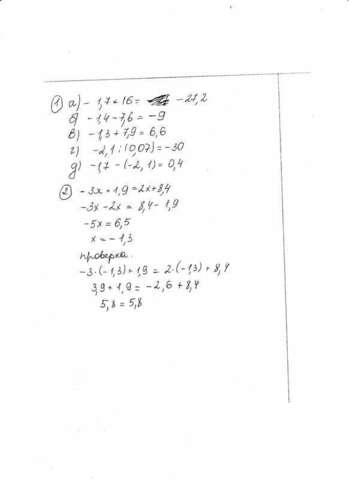 ① а) - 1,7 · 16 = - 27,2
б) - 1,4 - 7,6 = - 9
в) - 1,3 + 7,9 = 6,6
г) - 2,1 : (0,07) = - 30
д) - 1,7 - (- 2,1) = 0,4
② - 3x + 1,9 = 2x + 8,4
- 3x - 2x = 8,4 - 1,9
- 5x = 6,5
x = - 1,3
проверка.
- 3 · (- 1,3) + 1,9 = 2 · (- 1,3) + 8,4
3,9 + 1,9 = - 2,6 + 8,4
5,8 = 5,8